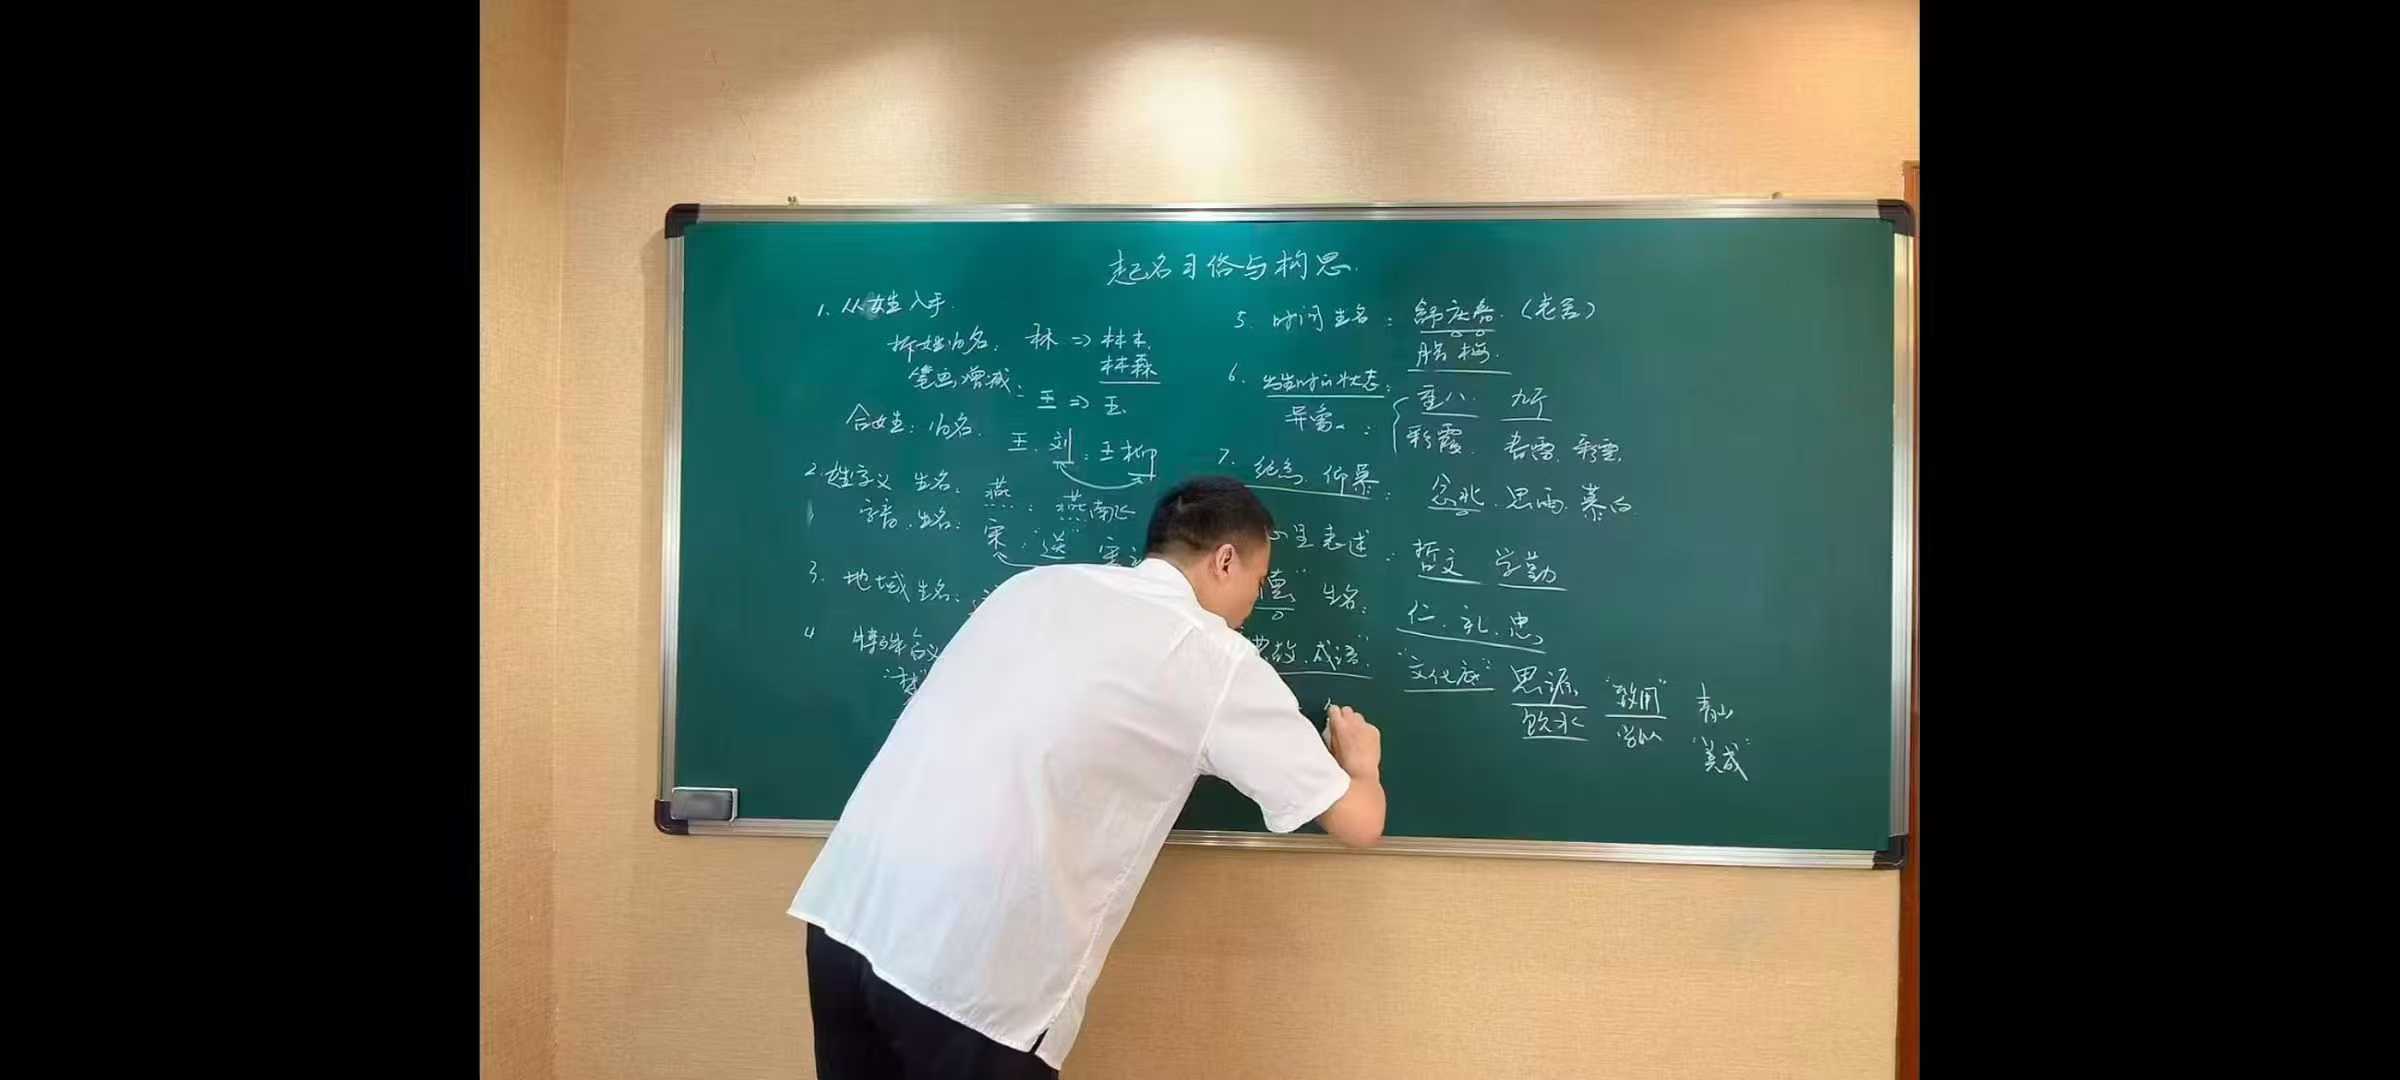 起名习俗与构思.
1. 从姓入手.
拆姓为名: 林 => 林木.
林森
笔画增减.
王 => 玉
合姓: 为名. 王、刘: 王柳
2. 姓字义 生名: 燕: 燕南飞
字音. 生名: 宋: "送" 宋
3. 地域生名:
4 特殊含义
5. 时间生名: 舒庆春. (老舍)
腊梅.
6. 出生时的状态: 重八. 九斤
异象: 彩霞. 春雷. 彩云.
7. 纪念. 仰慕: 念北. 思雨. 慕白
心里表述: 哲文 学勤
德" 生名: 仁. 礼. 忠.
典故. 成语". "文化底": 思源 "致用" 青山
饮水 学以 "美成"